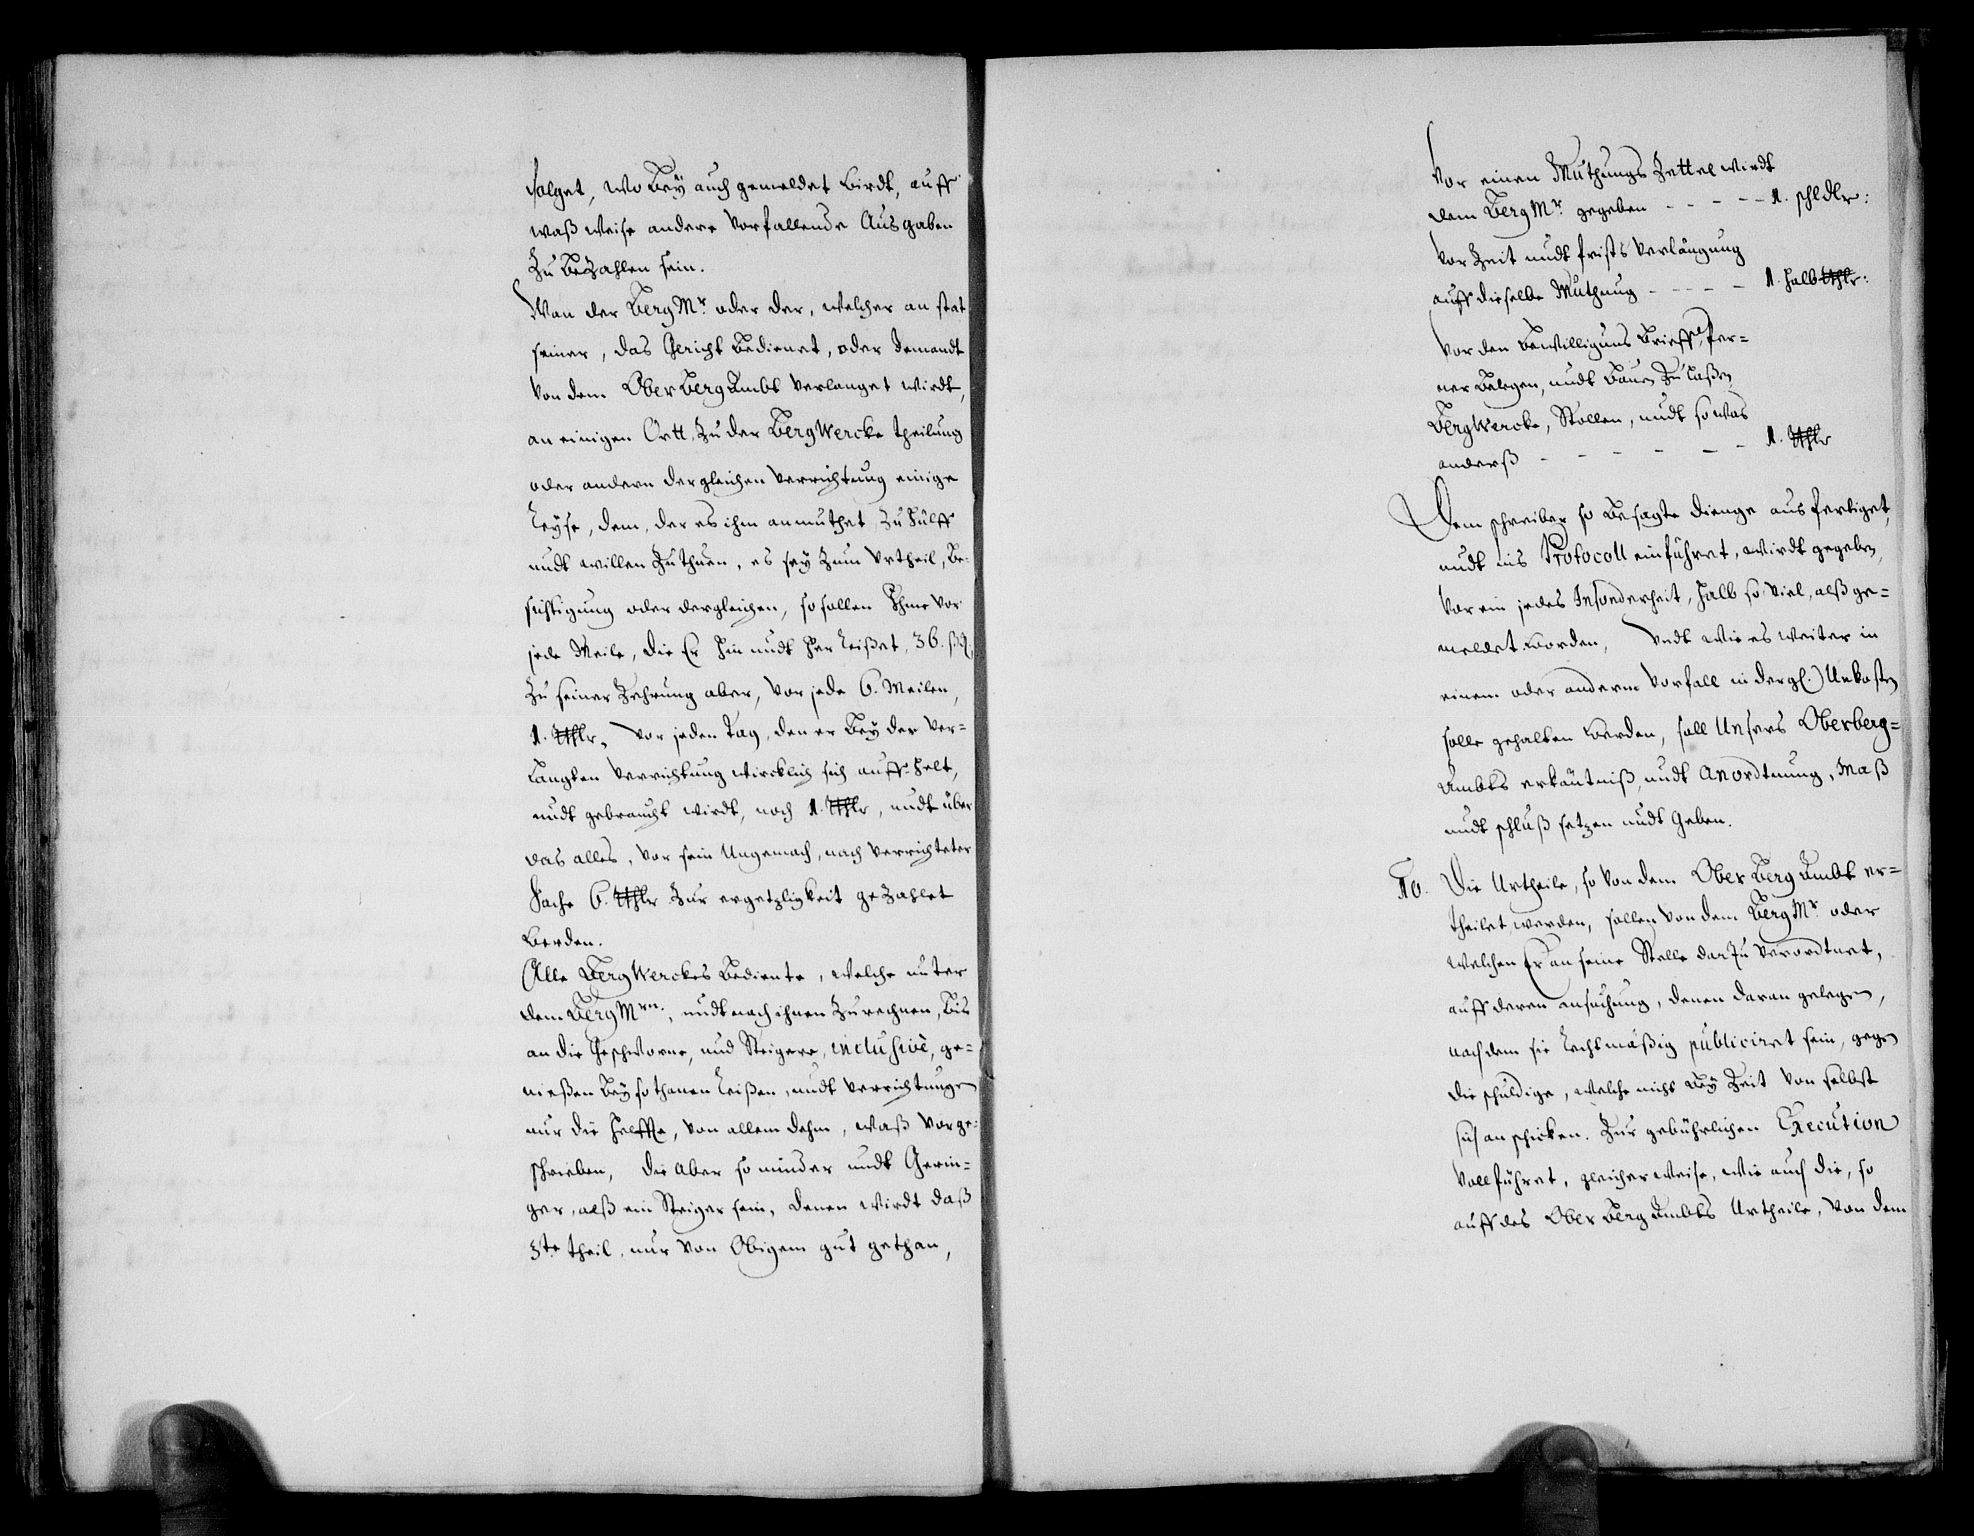 folget, wo bey auch gemeldet wirdt, auff
waß weise andere vorfallende Ausgaben
Zu bezahlen sein.
Wan der BergMr oder der, welcher an stat
seiner, das Gericht bedienet, oder Jemandt
von dem OberBergAmbt verlanget wirdt,
an einigen Ortt, Zu der BergWercke theilung
oder andern dergleichen verrichtung einige
Reyse, dem, der es ihm anmuthet, Zu hülff
undt willen Zuthuen, es sey Zum Urtheil, Be-
sichtigung oder dergleichen, so sollen Ihme vor
jede Meile, die Er hin undt her reißet, 36. ß
Zu seiner Zehrung aber, vor jede 6. Meilen,
1. Rthlr, vor jeden Tag, den er bey der ver-
langten verrichtung wircklich sich auff-helt,
undt gebraucht wirdt, noch 1. Rthlr, undt über
das alles, vor sein Ungemach, nach verrichteter
Sache 6. Rthlr Zur ergetzligkeit geZahlet
werden.
Alle BergWerckes bediente, welche unter
dem BergMrn., undt nach ihnen Zu rechnen, bis
an die Geschworne, und Steigere, inclusivè, ge-
nießen bey sothanen Reißen, undt verrichtungen
nur die helffte, von allem dehm, waß vorge-
schrieben, die aber so minder undt Gerin-
ger, alß ein Steiger sein, denen wirdt daß
3te theil, nur von Obigem gut gethan,
Vor einen Muthungs Zettel wirdt
dem BergMr. gegeben - - - - - 1. schldlr:
Vor Zeit undt frists verlängung
auff dieselbe Muthung - - - - - 1. halb Rthlr:
Vor den bewilligungs brieff, fer-
ner belegen, undt bauen Zu laßen
BergWercke, Stollen, undt so was
anderß - - - - - - 1. Rthlr
Dem schreiber so besagte dienge ausfertiget,
undt ins Protocoll einführet, wirdt gegeben,
vor ein jedes Insonderheit, halb so viel, alß ge-
meldet worden, undt wie es weiter in
einem oder anderm vorfall in dergl.) Unkosten
solle gehalten werden, soll Unsers Oberberg-
Ambts erkäntniß, undt Anordtnung, Maß
undt schluß setzen undt geben.
10. Die Urtheile, so von dem Ober Berg Ambt er-
theilet werden, sollen von dem BergMr. oder
welchen Er an seine Stelle darZu verordtnet,
auff deren ansuchung, denen daran gelegen,
nach dem sie rechtmäßig publiciret sein, gegen
die schuldige, welche nicht bey Zeit von selbst
sich anschicken. Zur gebührlichen Execution
vollführet, gleicher weise, wie auch die, so
auff des Ober Berg Ambts Urtheile, von dem